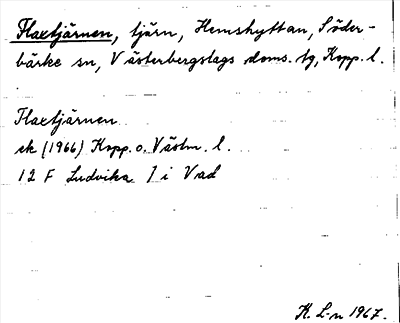 Flaxtjärnen, tjärn, Hemshyttan, Söder-
bärke sn, Västerbergslags doms. tg, Kopp. l.
Flaxtjärnen
ek (1966) Kopp. o. Västm. l.
12 F Ludvika I i Vad
K. L-n 1967.